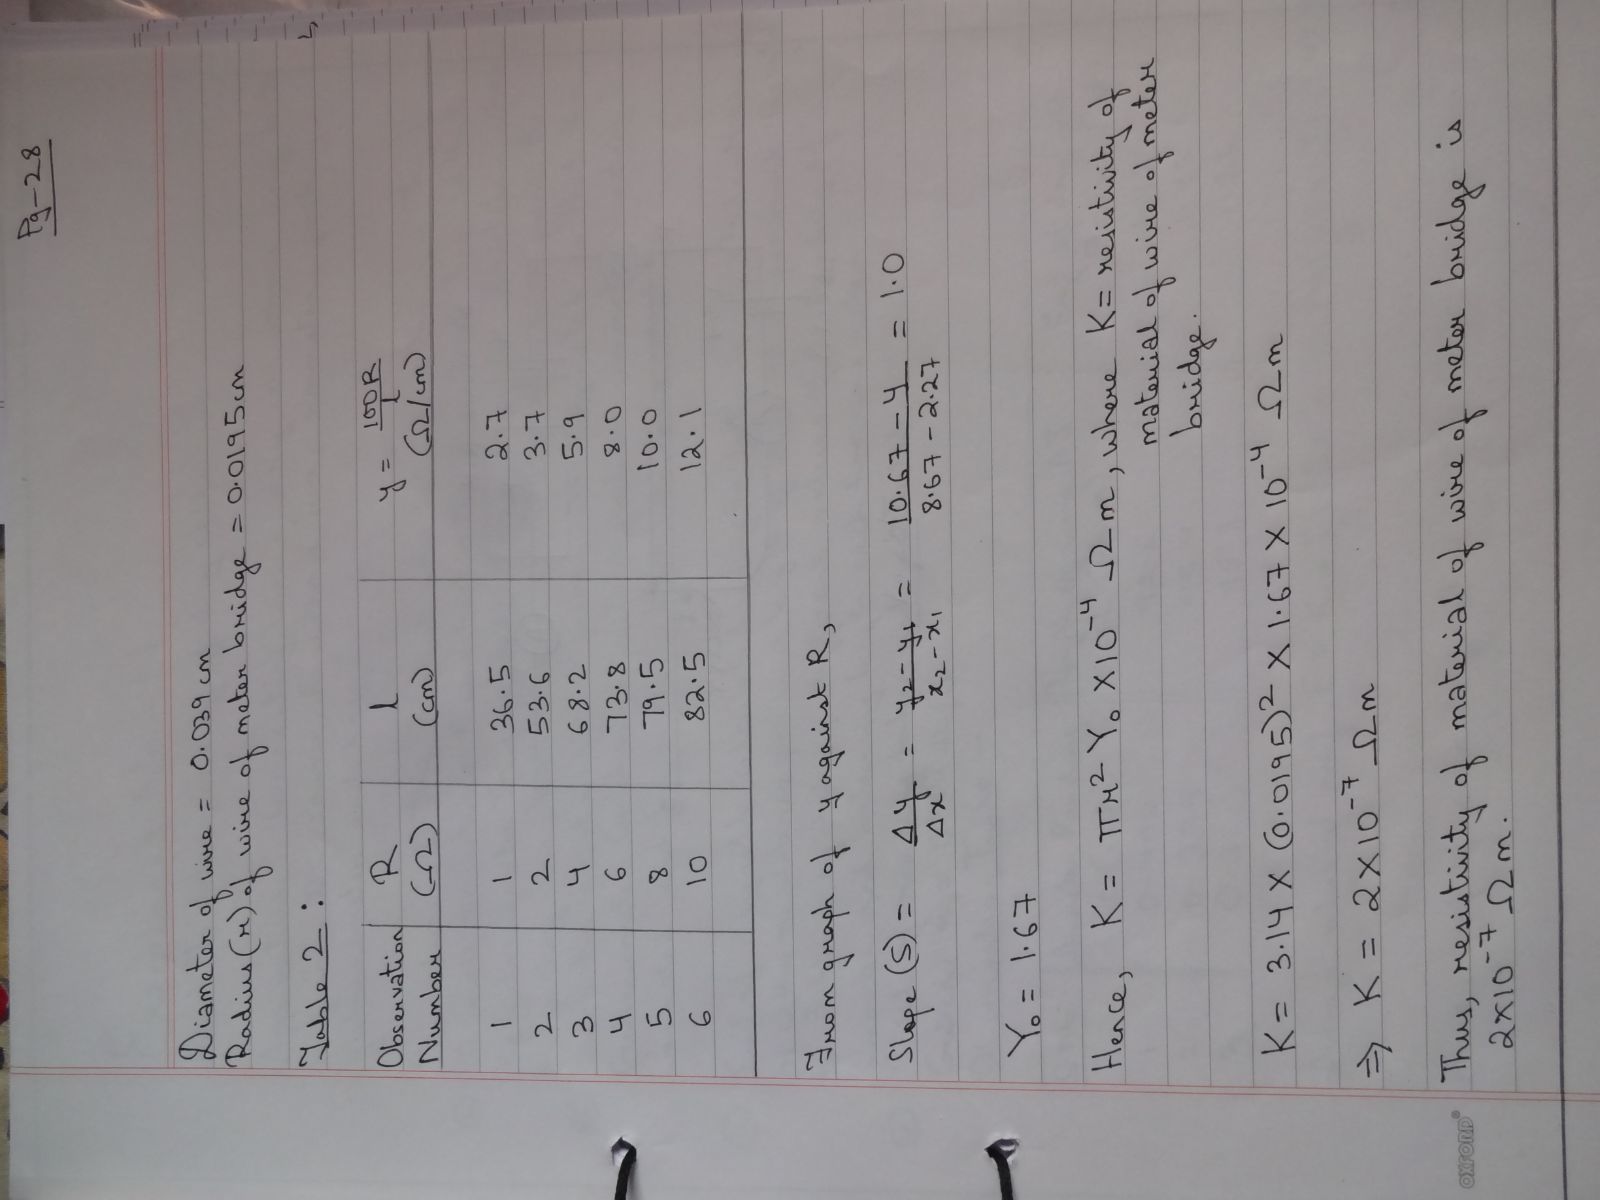 Pg-28
Diameter of wire = 0.039 cm
Radius (r) of wire of meter bridge = 0.0195 cm
Table 2 :
Observation Number | R (Ω) | l (cm) | y = 100R/l (Ω/cm)
1 | 1 | 36.5 | 2.7
2 | 2 | 53.6 | 3.7
3 | 4 | 68.2 | 5.9
4 | 6 | 73.8 | 8.0
5 | 8 | 79.5 | 10.0
6 | 10 | 82.5 | 12.1
From graph of y against R,
Slope (S) = Δy/Δx = y₂-y₁/x₂-x₁ = 10.67-4/8.67-2.27 = 1.0
Y₀ = 1.67
Hence, K = πr² Y₀ x10⁻⁴ Ωm, where K = resitivity of
material of wire of meter
bridge.
K = 3.14 x (0.0195)² x 1.67 x 10⁻⁴ Ωm
⇒ K = 2x10⁻⁷ Ωm
Thus, resistivity of material of wire of meter bridge is
2x10⁻⁷ Ωm.
OXFORD®